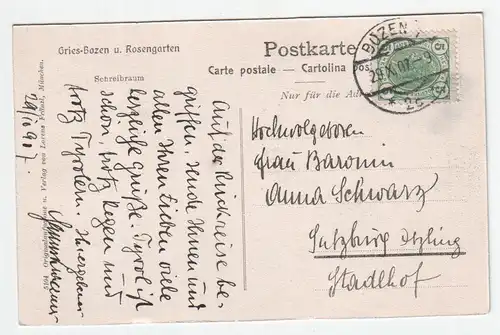 Gries-Bozen u. Rosengarten
Postkarte
Carte postale — Cartolina pos
Schreibraum
Nur für die Adr
BOZEN 1
29.IX.07.-9
* 2a *
5
5
Auf der Rückreise be-
griffen, sende Ihnen und
allen Ihren Lieben viele
herzige Grüße. Tyrol ist
schön, trotz Regen und
trotz Tyrolern. Ihr ergebener
29/9 07.
Hochwolgeboren
Frau Baronin
Anna Schwarz
Salzburg Itzling
Stadlhof
u. Verlag von Lorenz Fränzl, München.